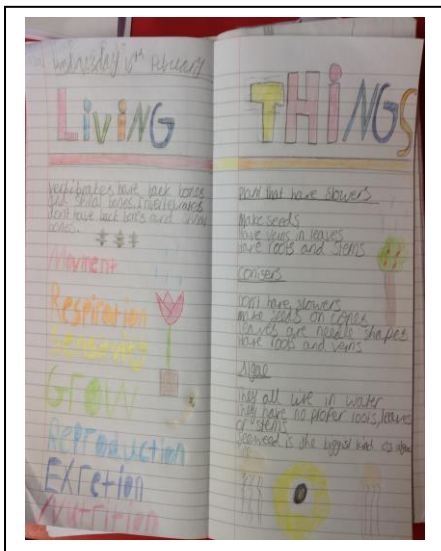 Wednesday 6th February
LiviNG
THiNGS
vertibrates have back bones
and spinal bones. Invertebrates
dont have back bones and
bones.
Movment
Respiration
Sensitivity
Grow
Reproduction
Exretion
Nutrition
plant that have flowers
Make seeds
have veins in leaves
have roots and stems
Conifers
Dont have flowers
make seeds on cones
leaves are needle shapes
have roots and veins
Algae
They all live in water
They have no proper roots, leaves
or stems
Seaweed is the biggest kind